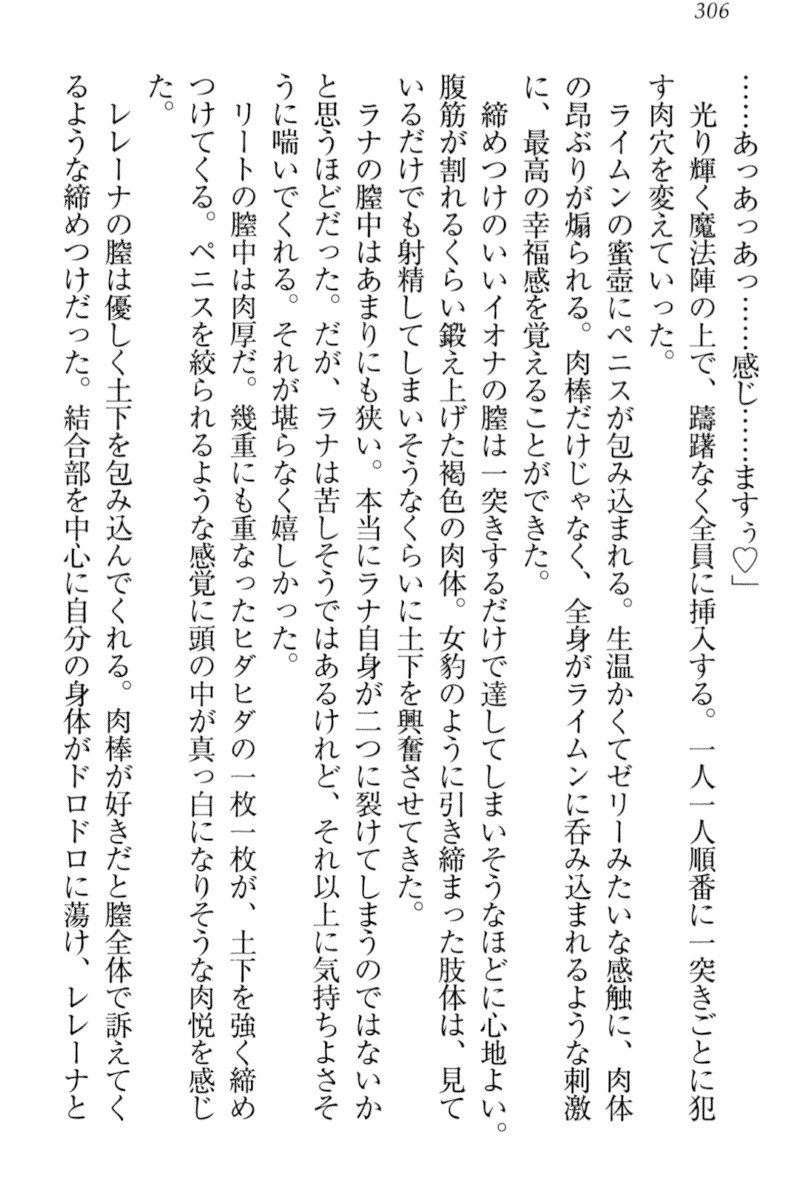 306
……あっあっあっ……感じ……ますぅ♡」
光り輝く魔法陣の上で、躊躇なく全員に挿入する。一人一人順番に一突きごとに犯
す肉穴を変えていった。
ライムンの蜜壺にペニスが包み込まれる。生温かくてゼリーみたいな感触に、肉体
の昂ぶりが煽られる。肉棒だけじゃなく、全身がライムンに呑み込まれるような刺激
に、最高の幸福感を覚えることができた。
締めつけのいいイオナの膣は一突きするだけで達してしまいそうなほどに心地よい。
腹筋が割れるくらい鍛え上げた褐色の肉体。女豹のように引き締まった肢体は、見て
いるだけでも射精してしまいそうなくらいに土下を興奮させてきた。
ラナの膣中はあまりにも狭い。本当にラナ自身が二つに裂けてしまうのではないか
と思うほどだった。だが、ラナは苦しそうではあるけれど、それ以上に気持ちよさそ
うに喘いでくれる。それが堪らなく嬉しかった。
リートの膣中は肉厚だ。幾重にも重なったヒダヒダの一枚一枚が、土下を強く締め
つけてくる。ペニスを絞られるような感覚に頭の中が真っ白になりそうな肉悦を感じ
た。
レレーナの膣は優しく土下を包み込んでくれる。肉棒が好きだと膣全体で訴えてく
るような締めつけだった。結合部を中心に自分の身体がドロドロに蕩け、レレーナと